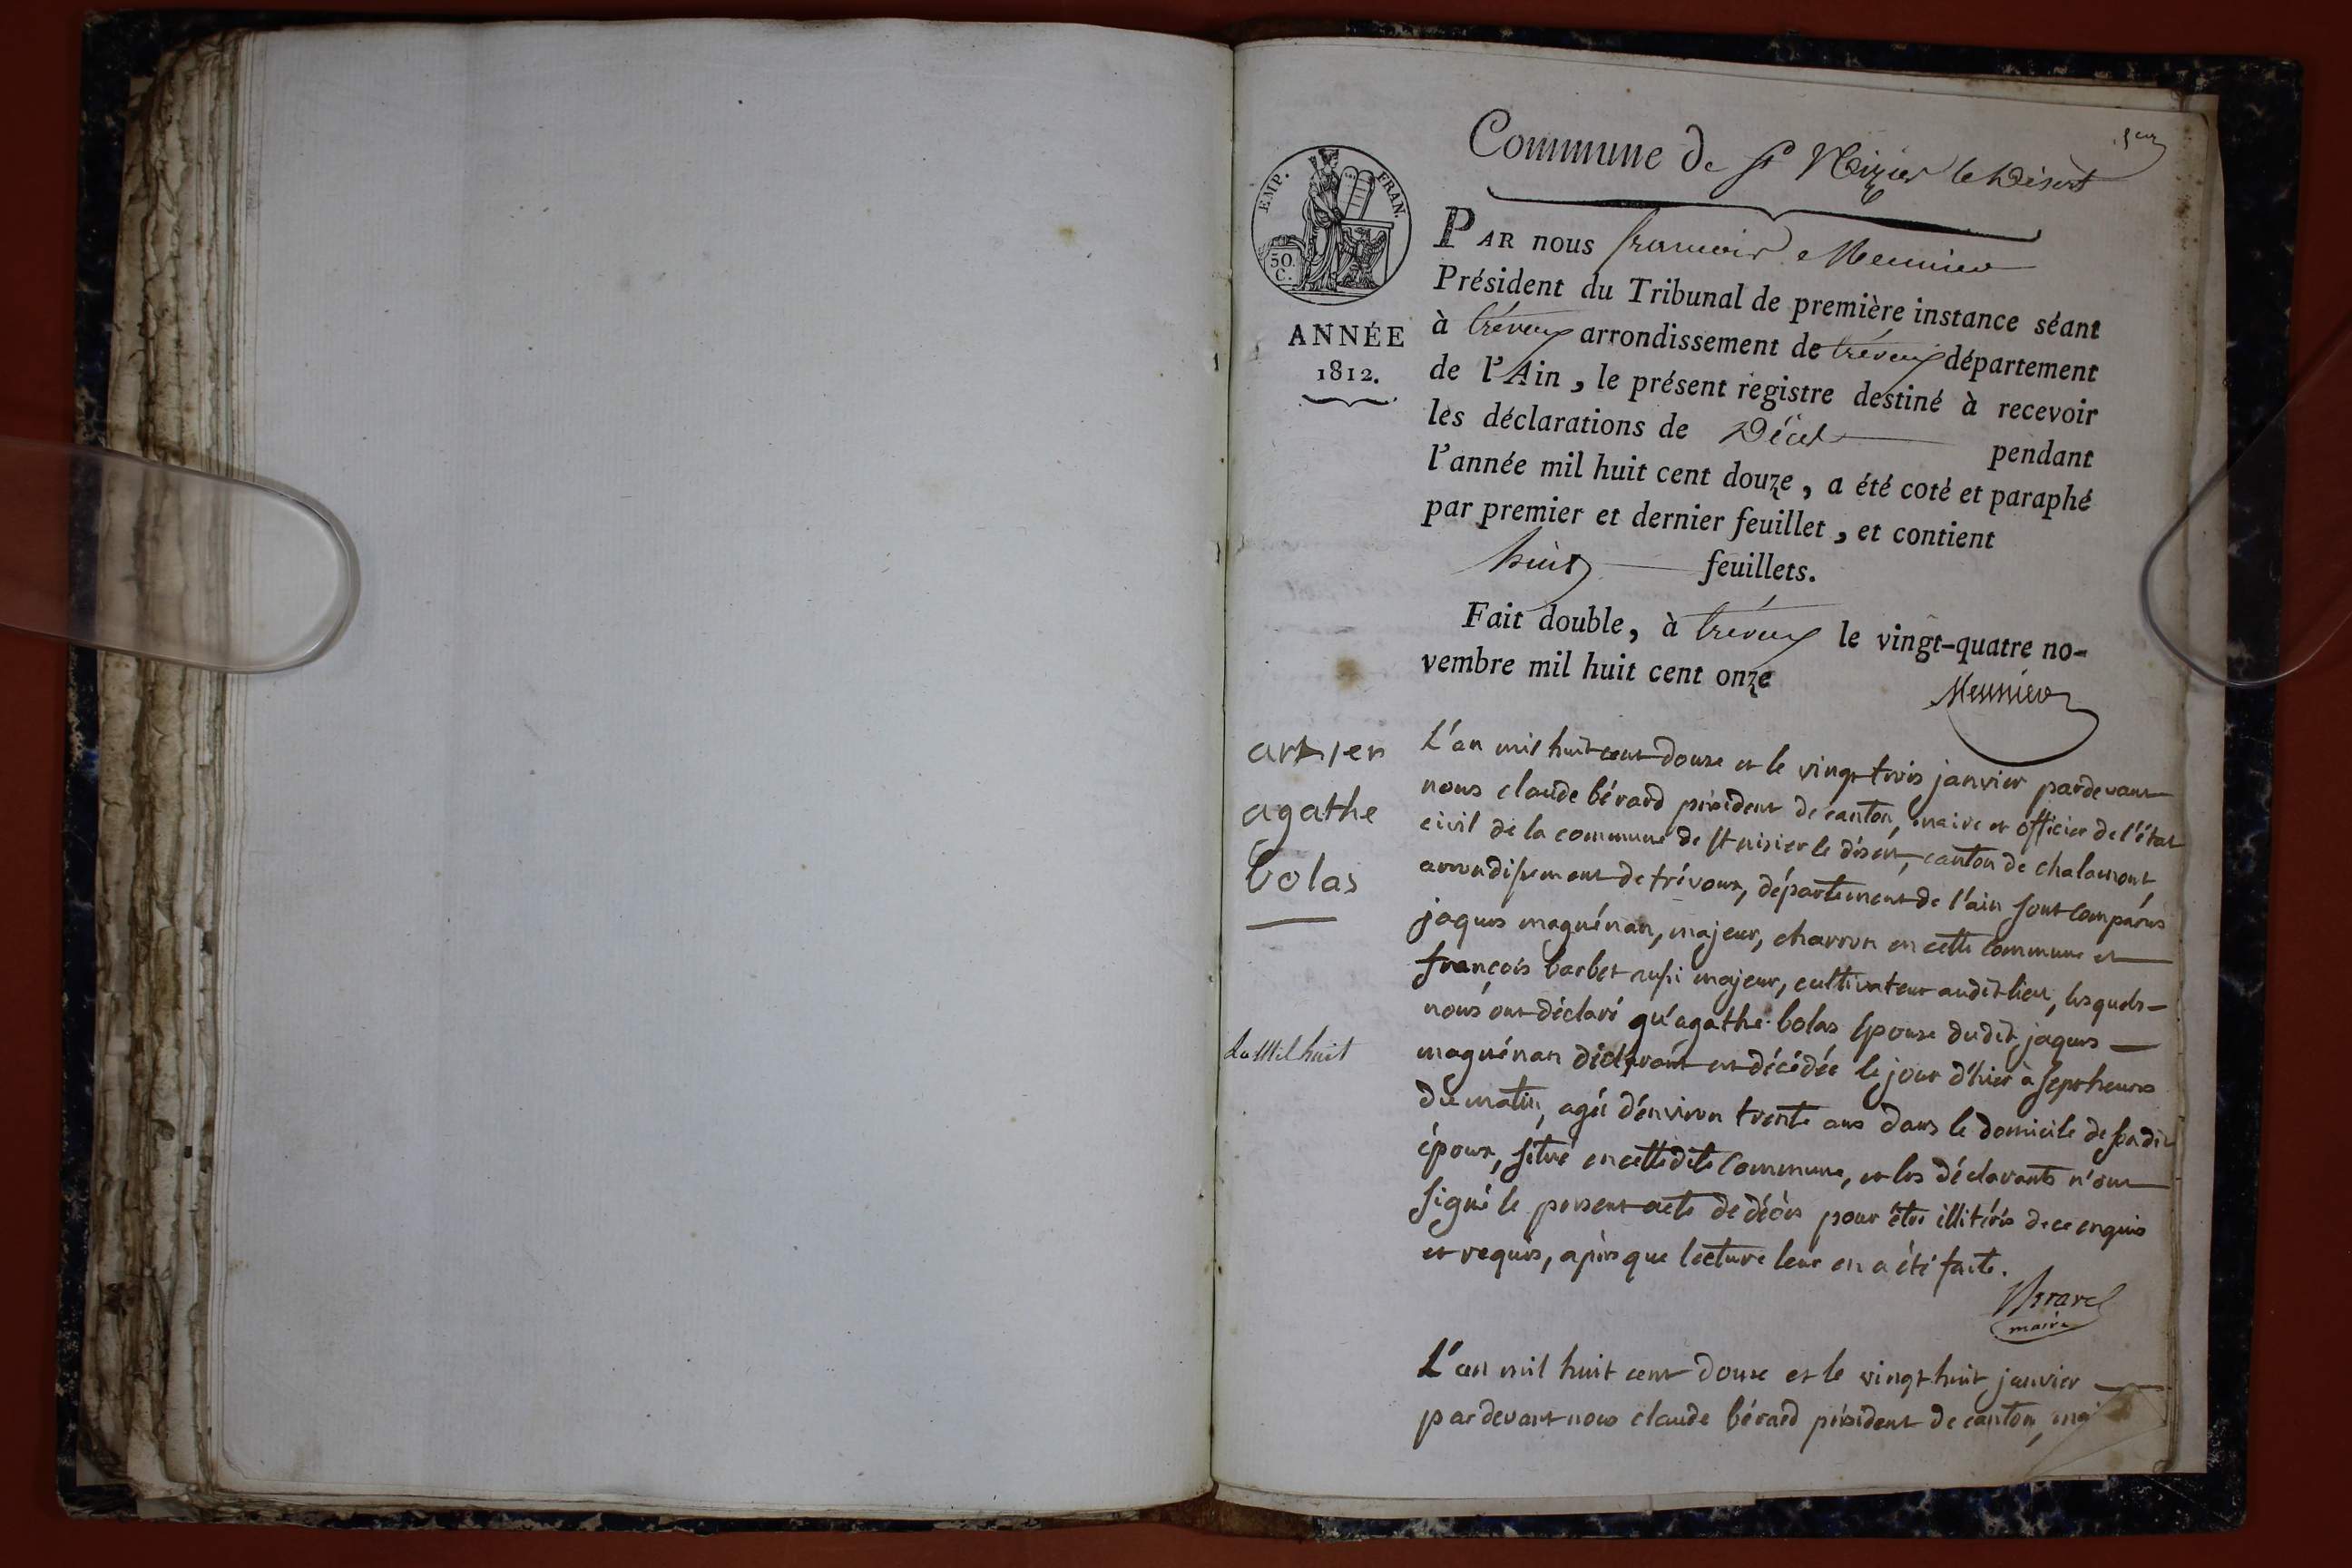 1er
Commune de St Nizier le Désert
EMP. FRAN.
50.
C.
ANNÉE
1812.
PAR nous françois Meunier
Président du Tribunal de première instance séant
à trévoux arrondissement de trévoux département
de l'Ain, le présent registre destiné à recevoir
les déclarations de Décès pendant
l'année mil huit cent douze, a été coté et paraphé
par premier et dernier feuillet, et contient
huit feuillets.
Fait double, à trévoux le vingt-quatre no-
vembre mil huit cent onze
Meunier
agathe
bolas
L'an mil huit cent douze et le vingt trois janvier pardevant
nous claude bérard président de canton, maire et officier de l'état
civil de la commune de st nisier le désert, canton de chalamont,
arrondissement de trévoux, département de l'ain sont comparus
jaques maguénan, majeur, charron en cette commune et
françois barbet aussi majeur, cultivateur audit lieu, lesquels
nous ont déclaré qu'agathe bolas épouse dudit jaques
maguénan déclarant est décédée le jour d'hier à sept heures
du matin, agée d'environ trente ans dans le domicile de son dit
époux, situé en cette dite commune, et les déclarants n'ont
signé le présent acte de décès pour être illitérés de ce enquis
et requis, après que lecture leur en a été faite.
Berard
maire
L'an mil huit cent douze et le vingt huit janvier
pardevant nous claude bérard président de canton,